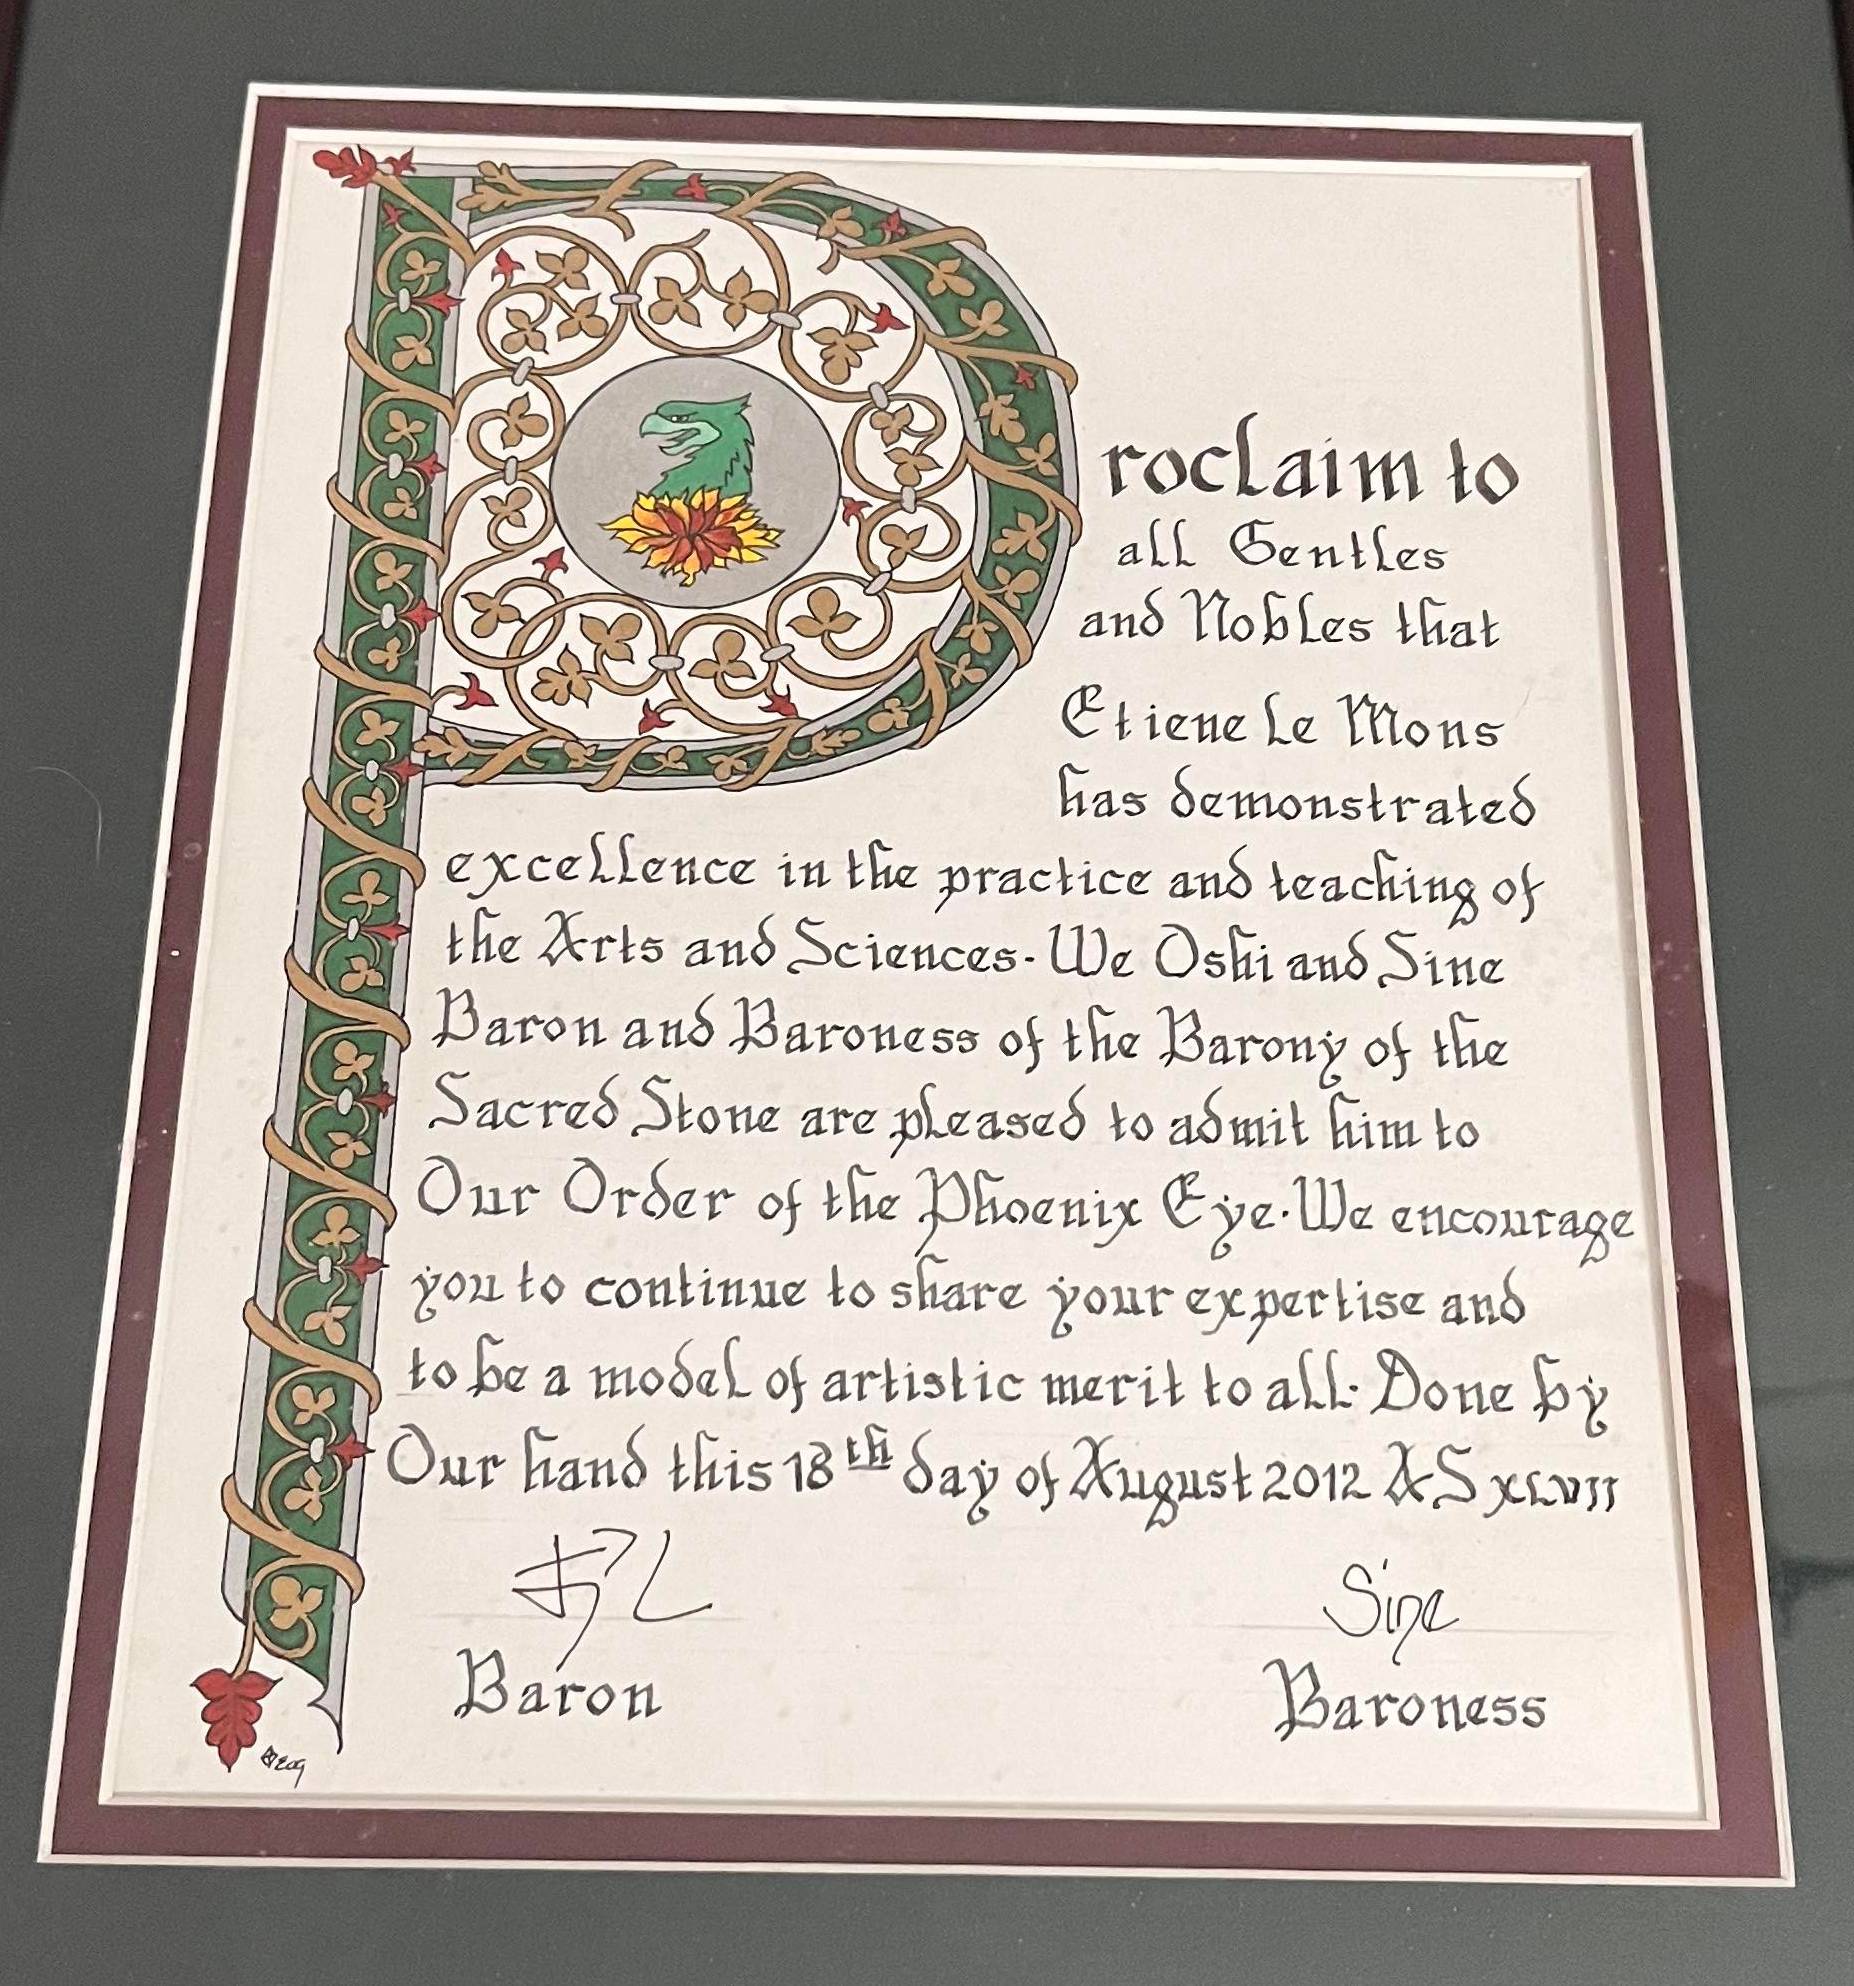 Proclaim to
all Gentles
and Nobles that
Etiene Le Mons
has demonstrated
excellence in the practice and teaching of
the Arts and Sciences. We Oshi and Sine
Baron and Baroness of the Barony of the
Sacred Stone are pleased to admit him to
Our Order of the Phoenix Eye. We encourage
you to continue to share your expertise and
to be a model of artistic merit to all. Done by
Our hand this 18th day of August 2012 AS XLVII
Sine
Baron
Baroness